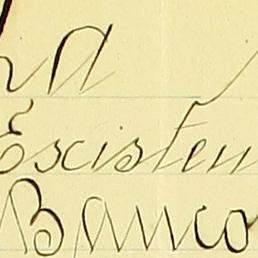 Existen
Banco